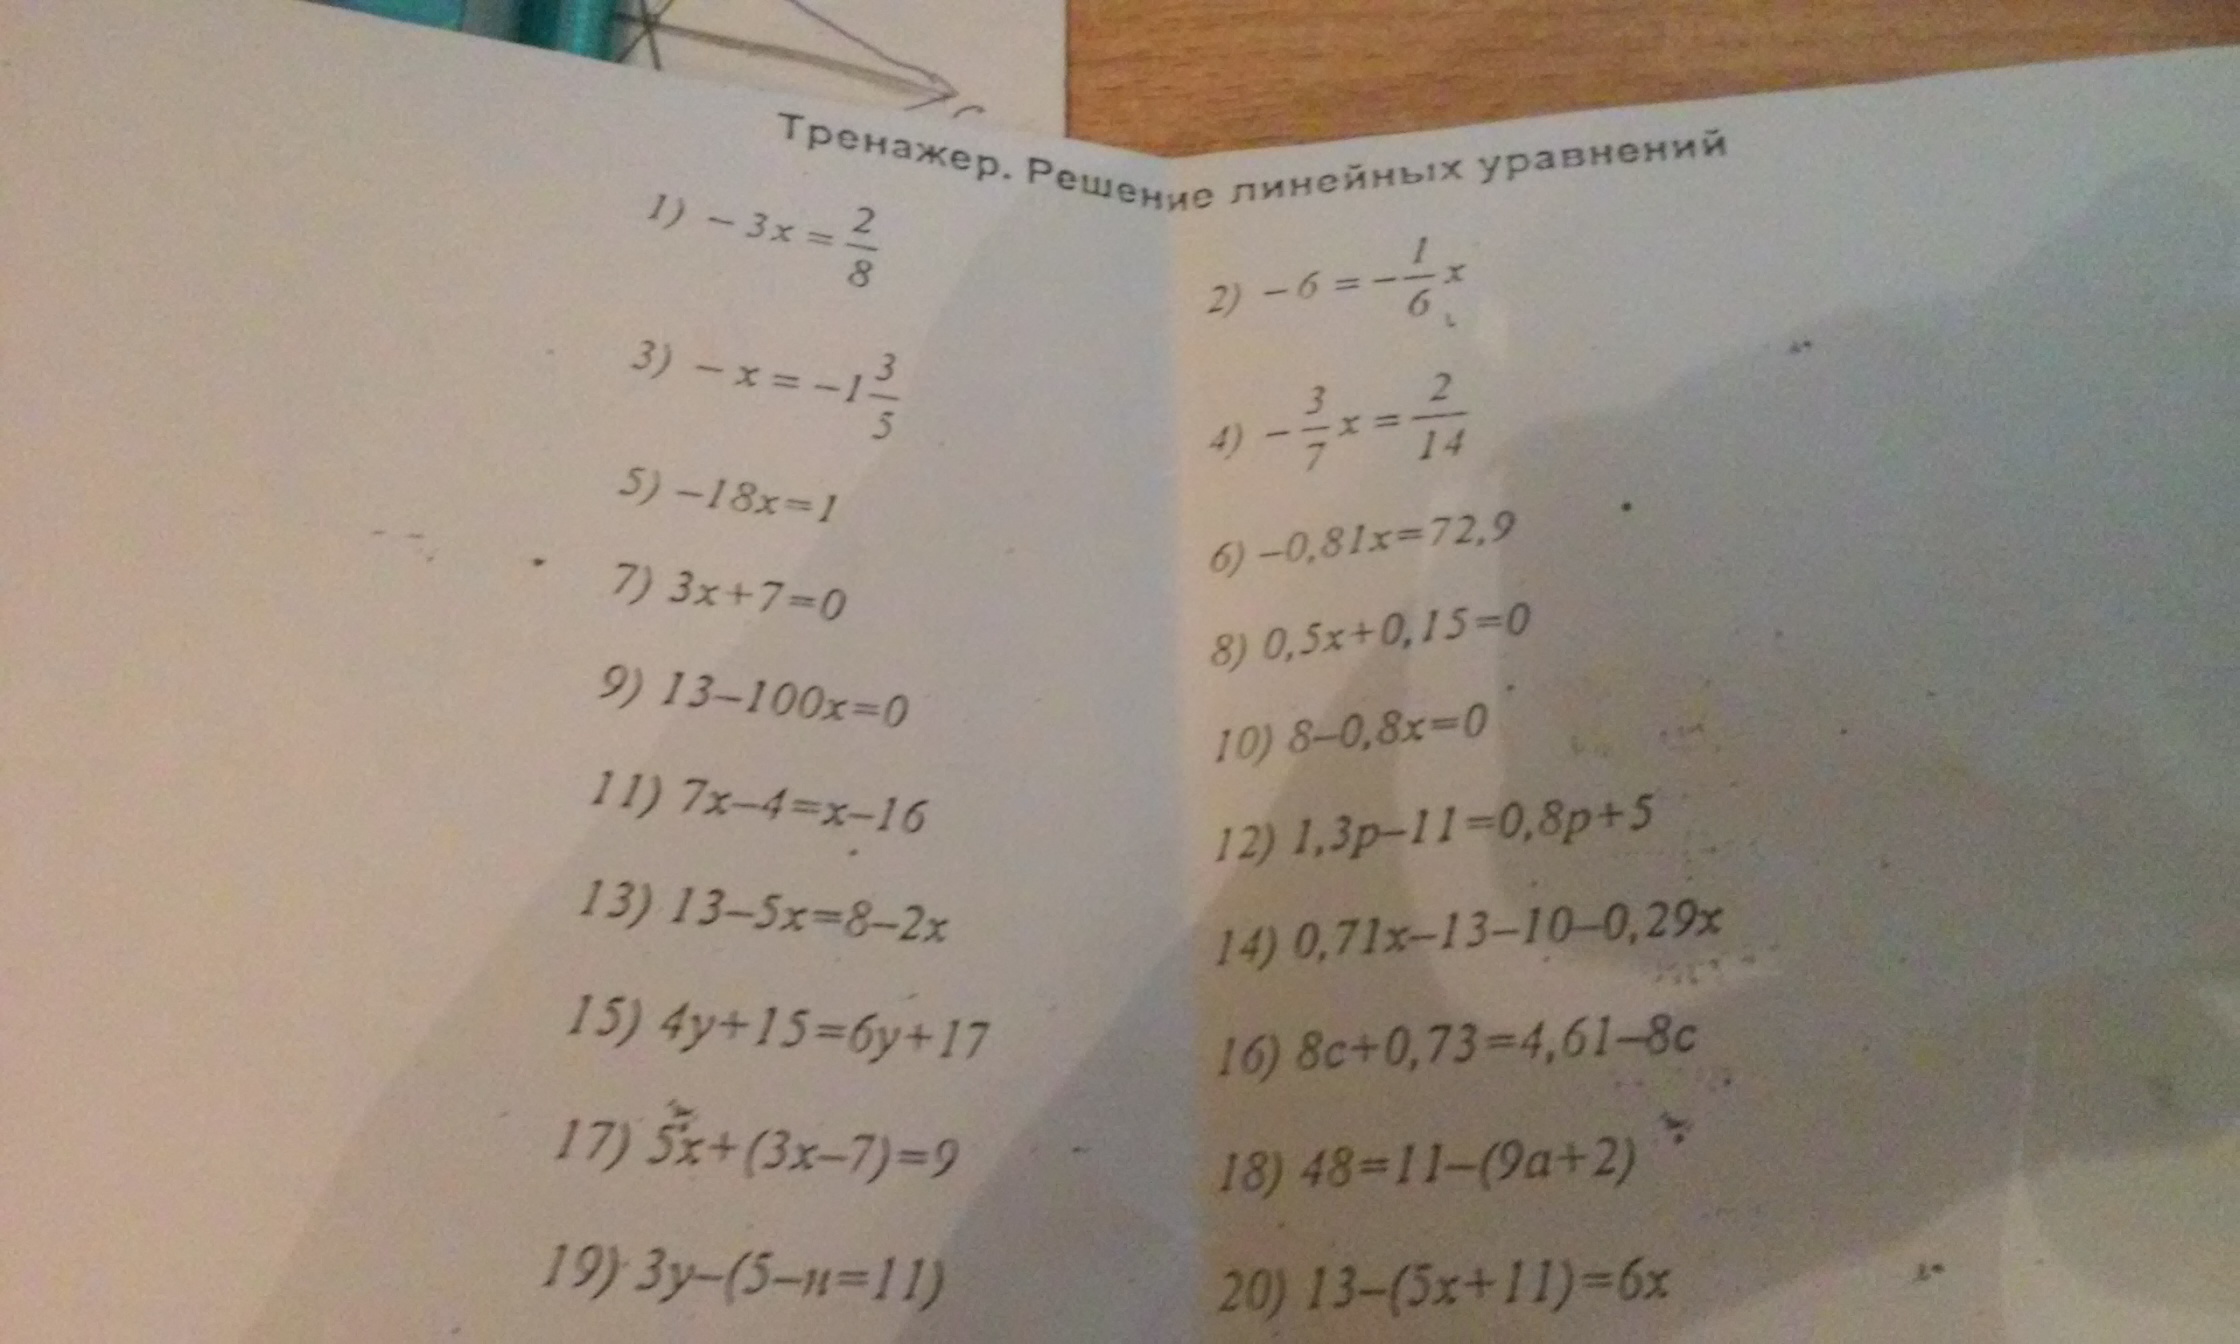 Тренажер. Решение линейных уравнений
1) − 3x = 2/8
2) − 6 = −1/6 x
3) − x = −1 3/5
4) −3/7 x = 2/14
5) −18x=1
6) −0,81x=72,9
7) 3x+7=0
8) 0,5x+0,15=0
9) 13−100x=0
10) 8−0,8x=0
11) 7x−4=x−16
12) 1,3p−11=0,8p+5
13) 13−5x=8−2x
14) 0,71x−13−10−0,29x
15) 4y+15=6y+17
16) 8c+0,73=4,61−8c
17) 5x+(3x−7)=9
18) 48=11−(9a+2)
19) 3y−(5−и=11)
20) 13−(5x+11)=6x